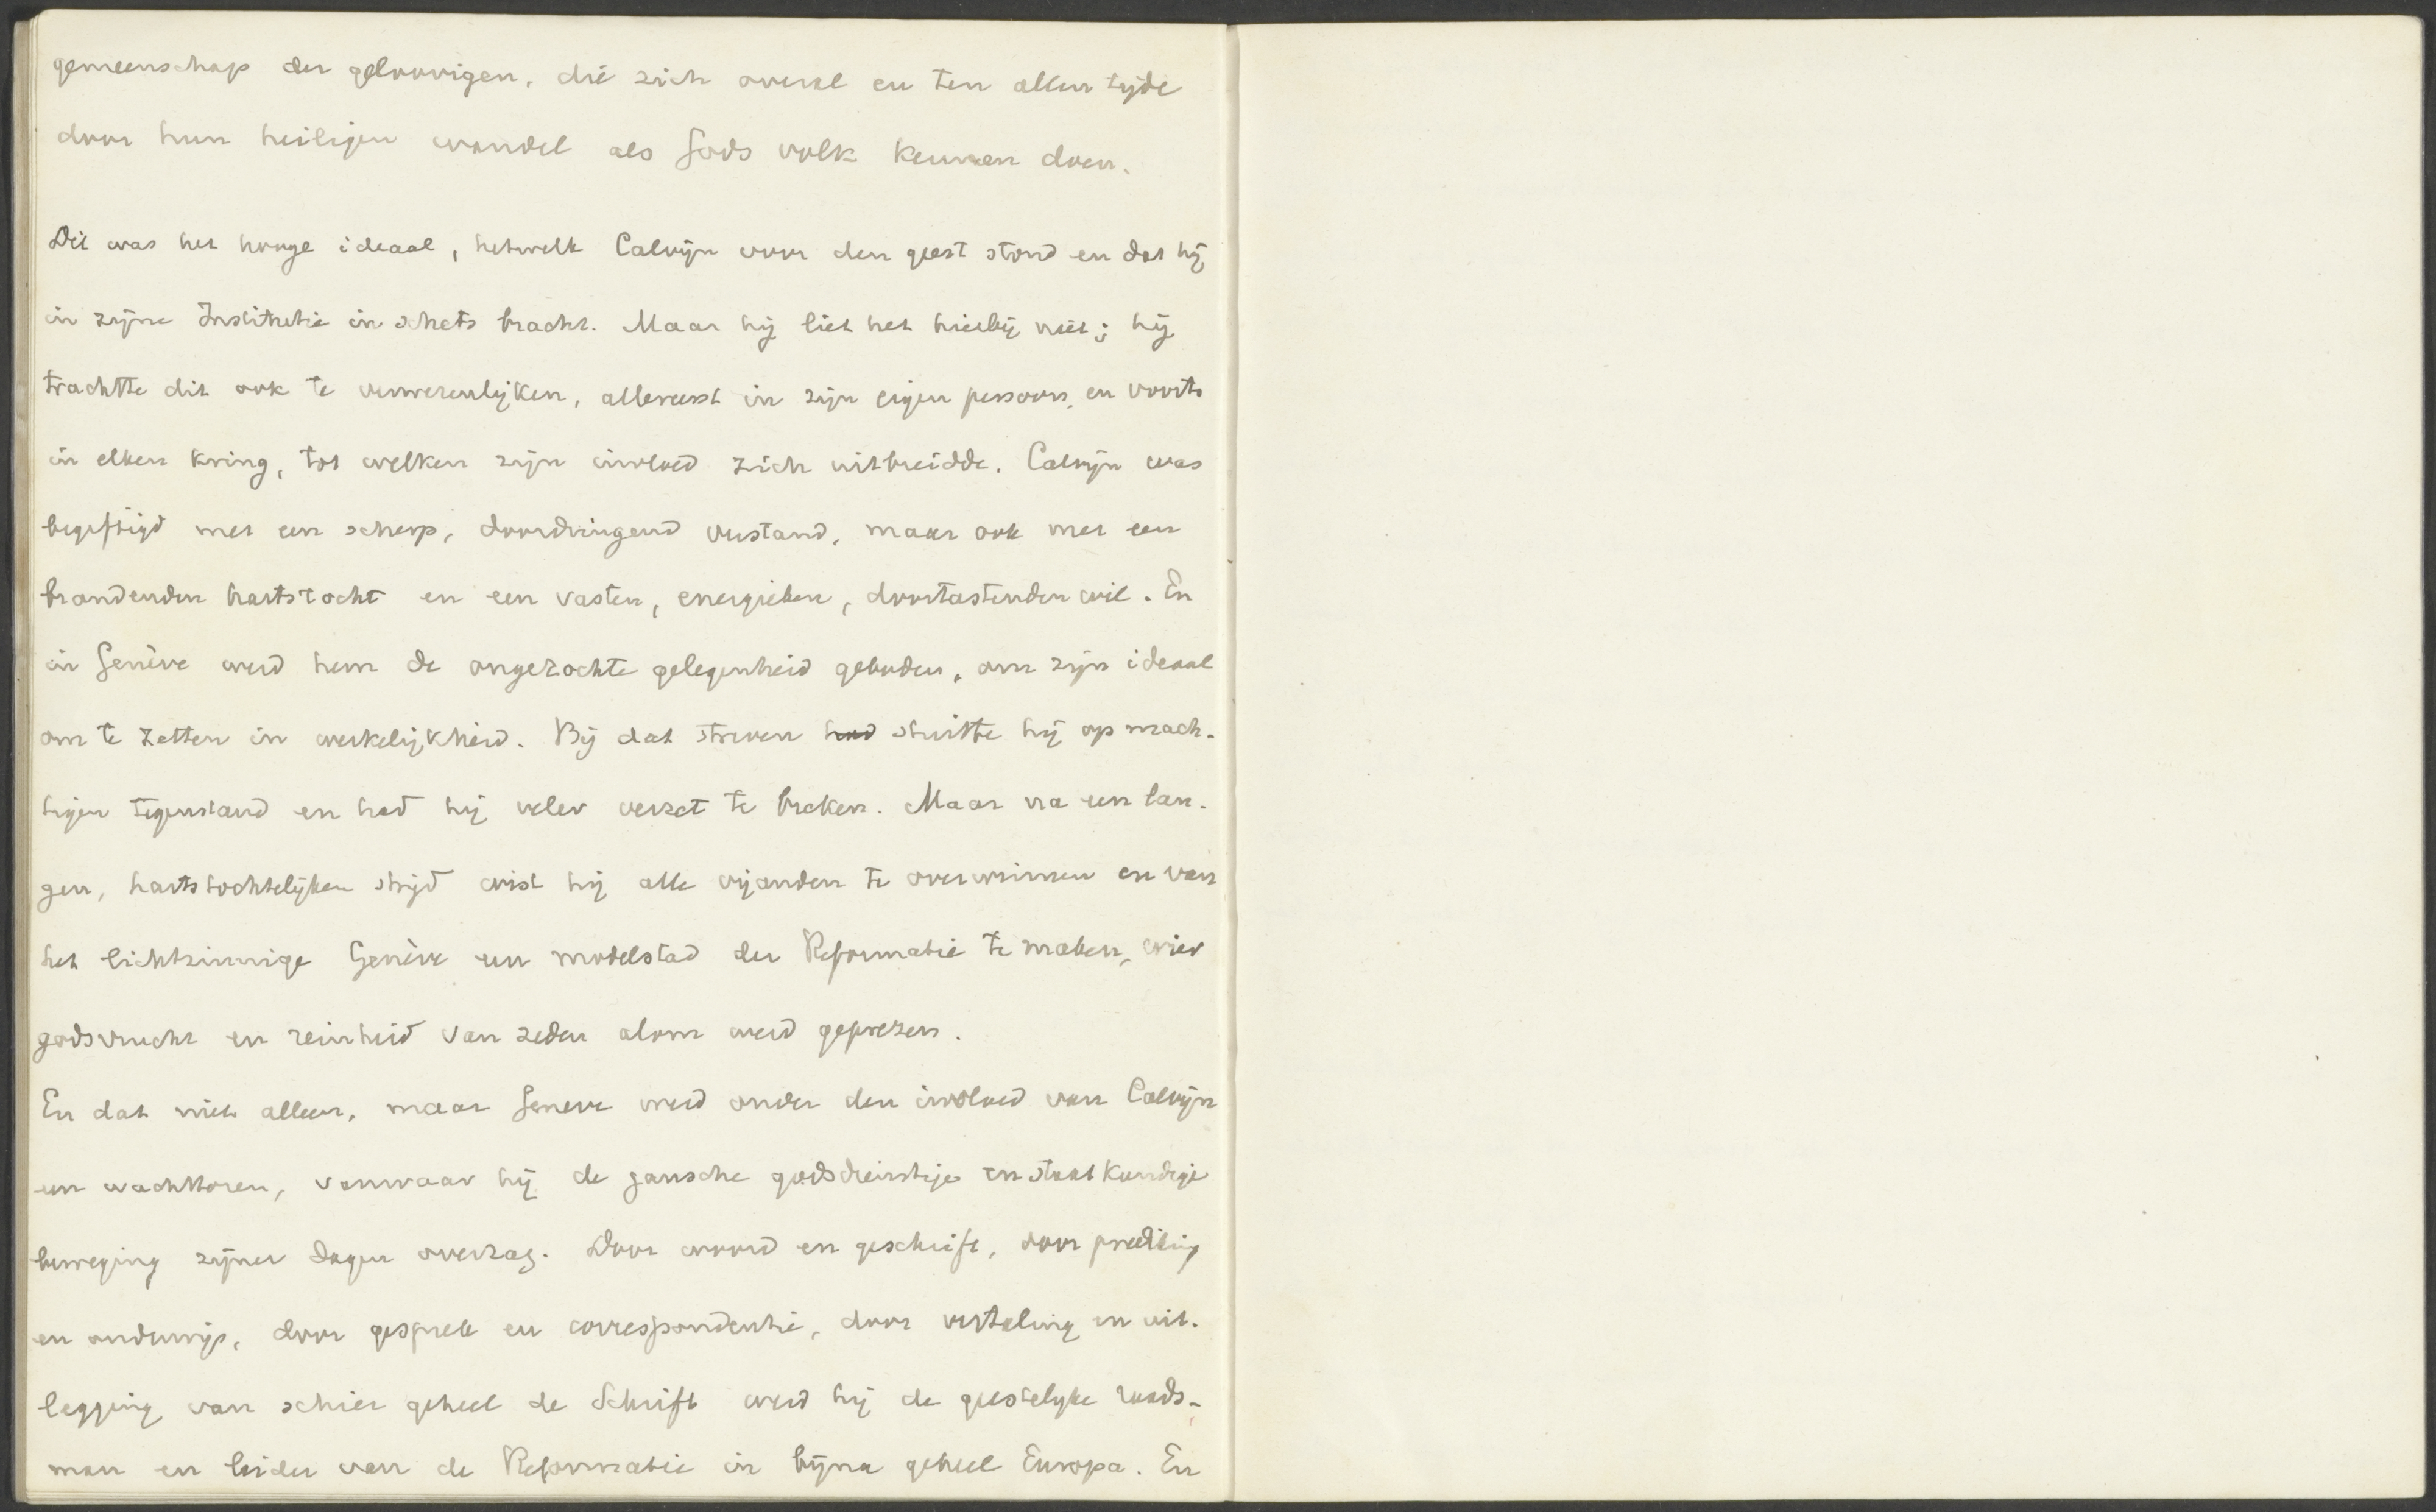 gemeenschap der geloovigen, die zich overal en ten allen tijde
door hun heiligen wandel als Gods volk kennen doen.
Dit was het hooge ideaal, hetwelk Calvijn voor den geest stond en dat hij
in zijne Institutie in schets bracht. Maar hij liet het hierbij niet; hij
trachtte dit ook te verwezenlijken, allereerst in zijn eigen persoon, en voorts
in elken kring, tot welken zijn invloed zich uitbreidde. Calvijn was
begiftigd met een scherp, doordringend verstand, maar ook met een
brandenden hartstocht en een vasten, energieken, doortastenden wil. En
in Genève werd hem de ongezochte gelegenheid geboden, om zijn ideaal
om te zetten in werkelijkheid. Bij dat streven had stuitte hij op mach-
tigen tegenstand en had hij veler verzet te breken. Maar na een lan-
gen, hartstochtelijken strijd wist hij alle vijanden te overwinnen en van
het lichtzinnige Genève een modelstad der Reformatie te maken, wier
godsvrucht en reinheid van zeden alom werd geprezen.
En dat niet alleen, maar Geneve werd onder den invloed van Calvijn
een wachttoren, vanwaar hij de gansche godsdienstige en staatkundige
beweging zijner dagen overzag. Door woord en geschrift, door prediking
en onderwijs, door gesprek en correspondentie, door vertaling en uit-
legging van schier geheel de Schrift werd hij de geestelijke raads-
man en leider van de Reformatie in bijna geheel Europa. En